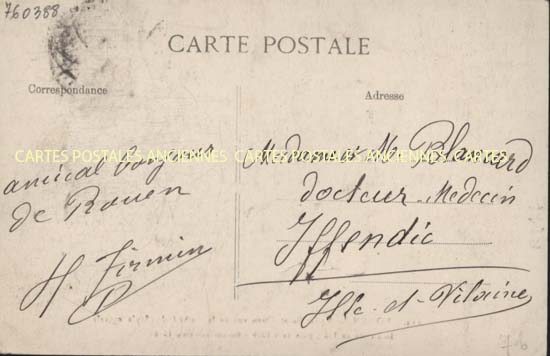 760388
CARTE POSTALE
Correspondance
Adresse
CARTES POSTALES ANCIENNES CARTES POSTALES ANCIENNES CARTES
amical Bonjour
de Rouen
H. Firmin
Blanchard
docteur Medecin
Iffendic
Ille-et-Vilaine